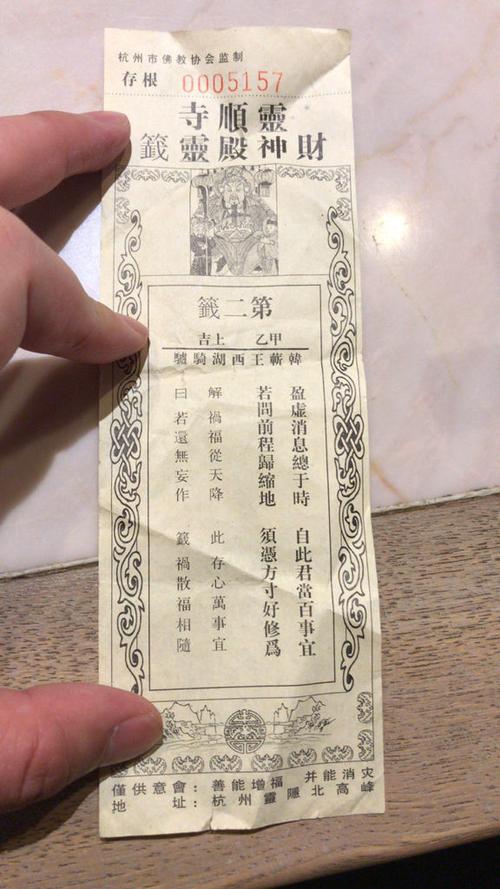 杭州市佛教协会监制
存根 0005157
靈順寺
財神殿靈籤
第二籤
甲乙 上吉
韓蘄王西湖騎驢
盈虛消息總于時 自此君當百事宜
若問前程歸縮地 須憑方寸好修爲
解 禍福從天降 此 存心萬事宜
曰 若還無妄作 籤 禍散福相隨
僅供意會：善能增福 并能消灾
地址：杭州靈隱北高峰